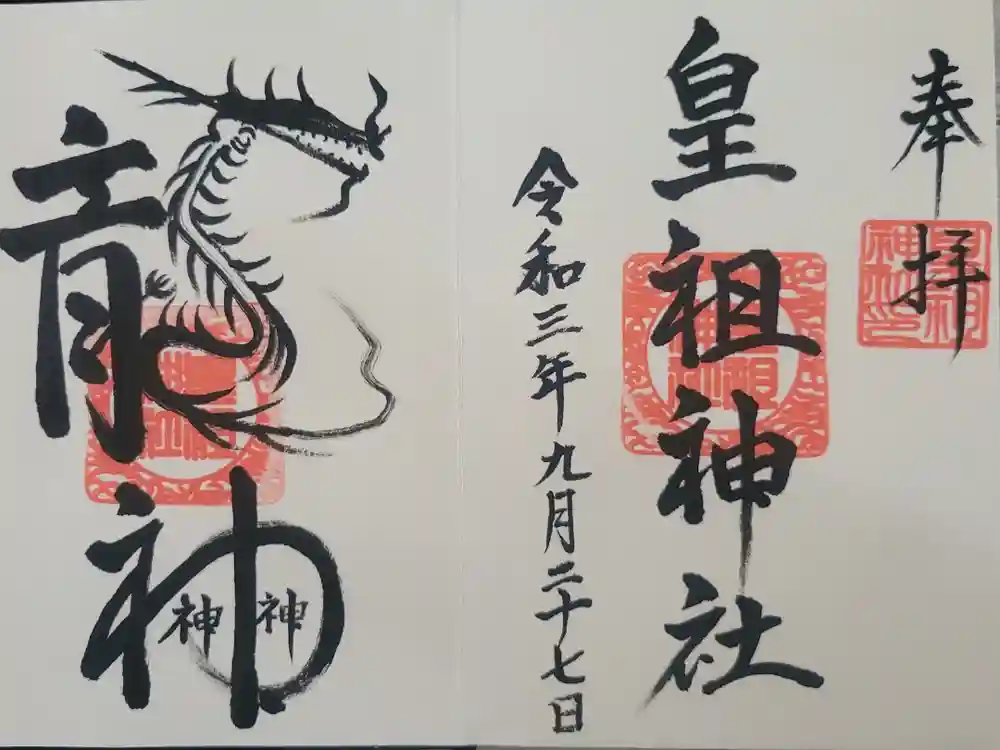 奉拝
皇祖神社
令和三年九月二十七日
龍神
神 神